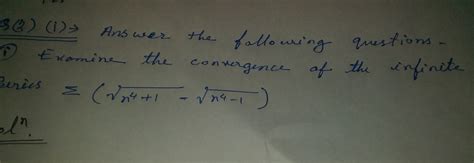 3(2) (1)→ Answer the following questions-
(i) Examine the convergence of the infinite
Series Σ (√n⁴+1 - √n⁴-1)
olⁿ.